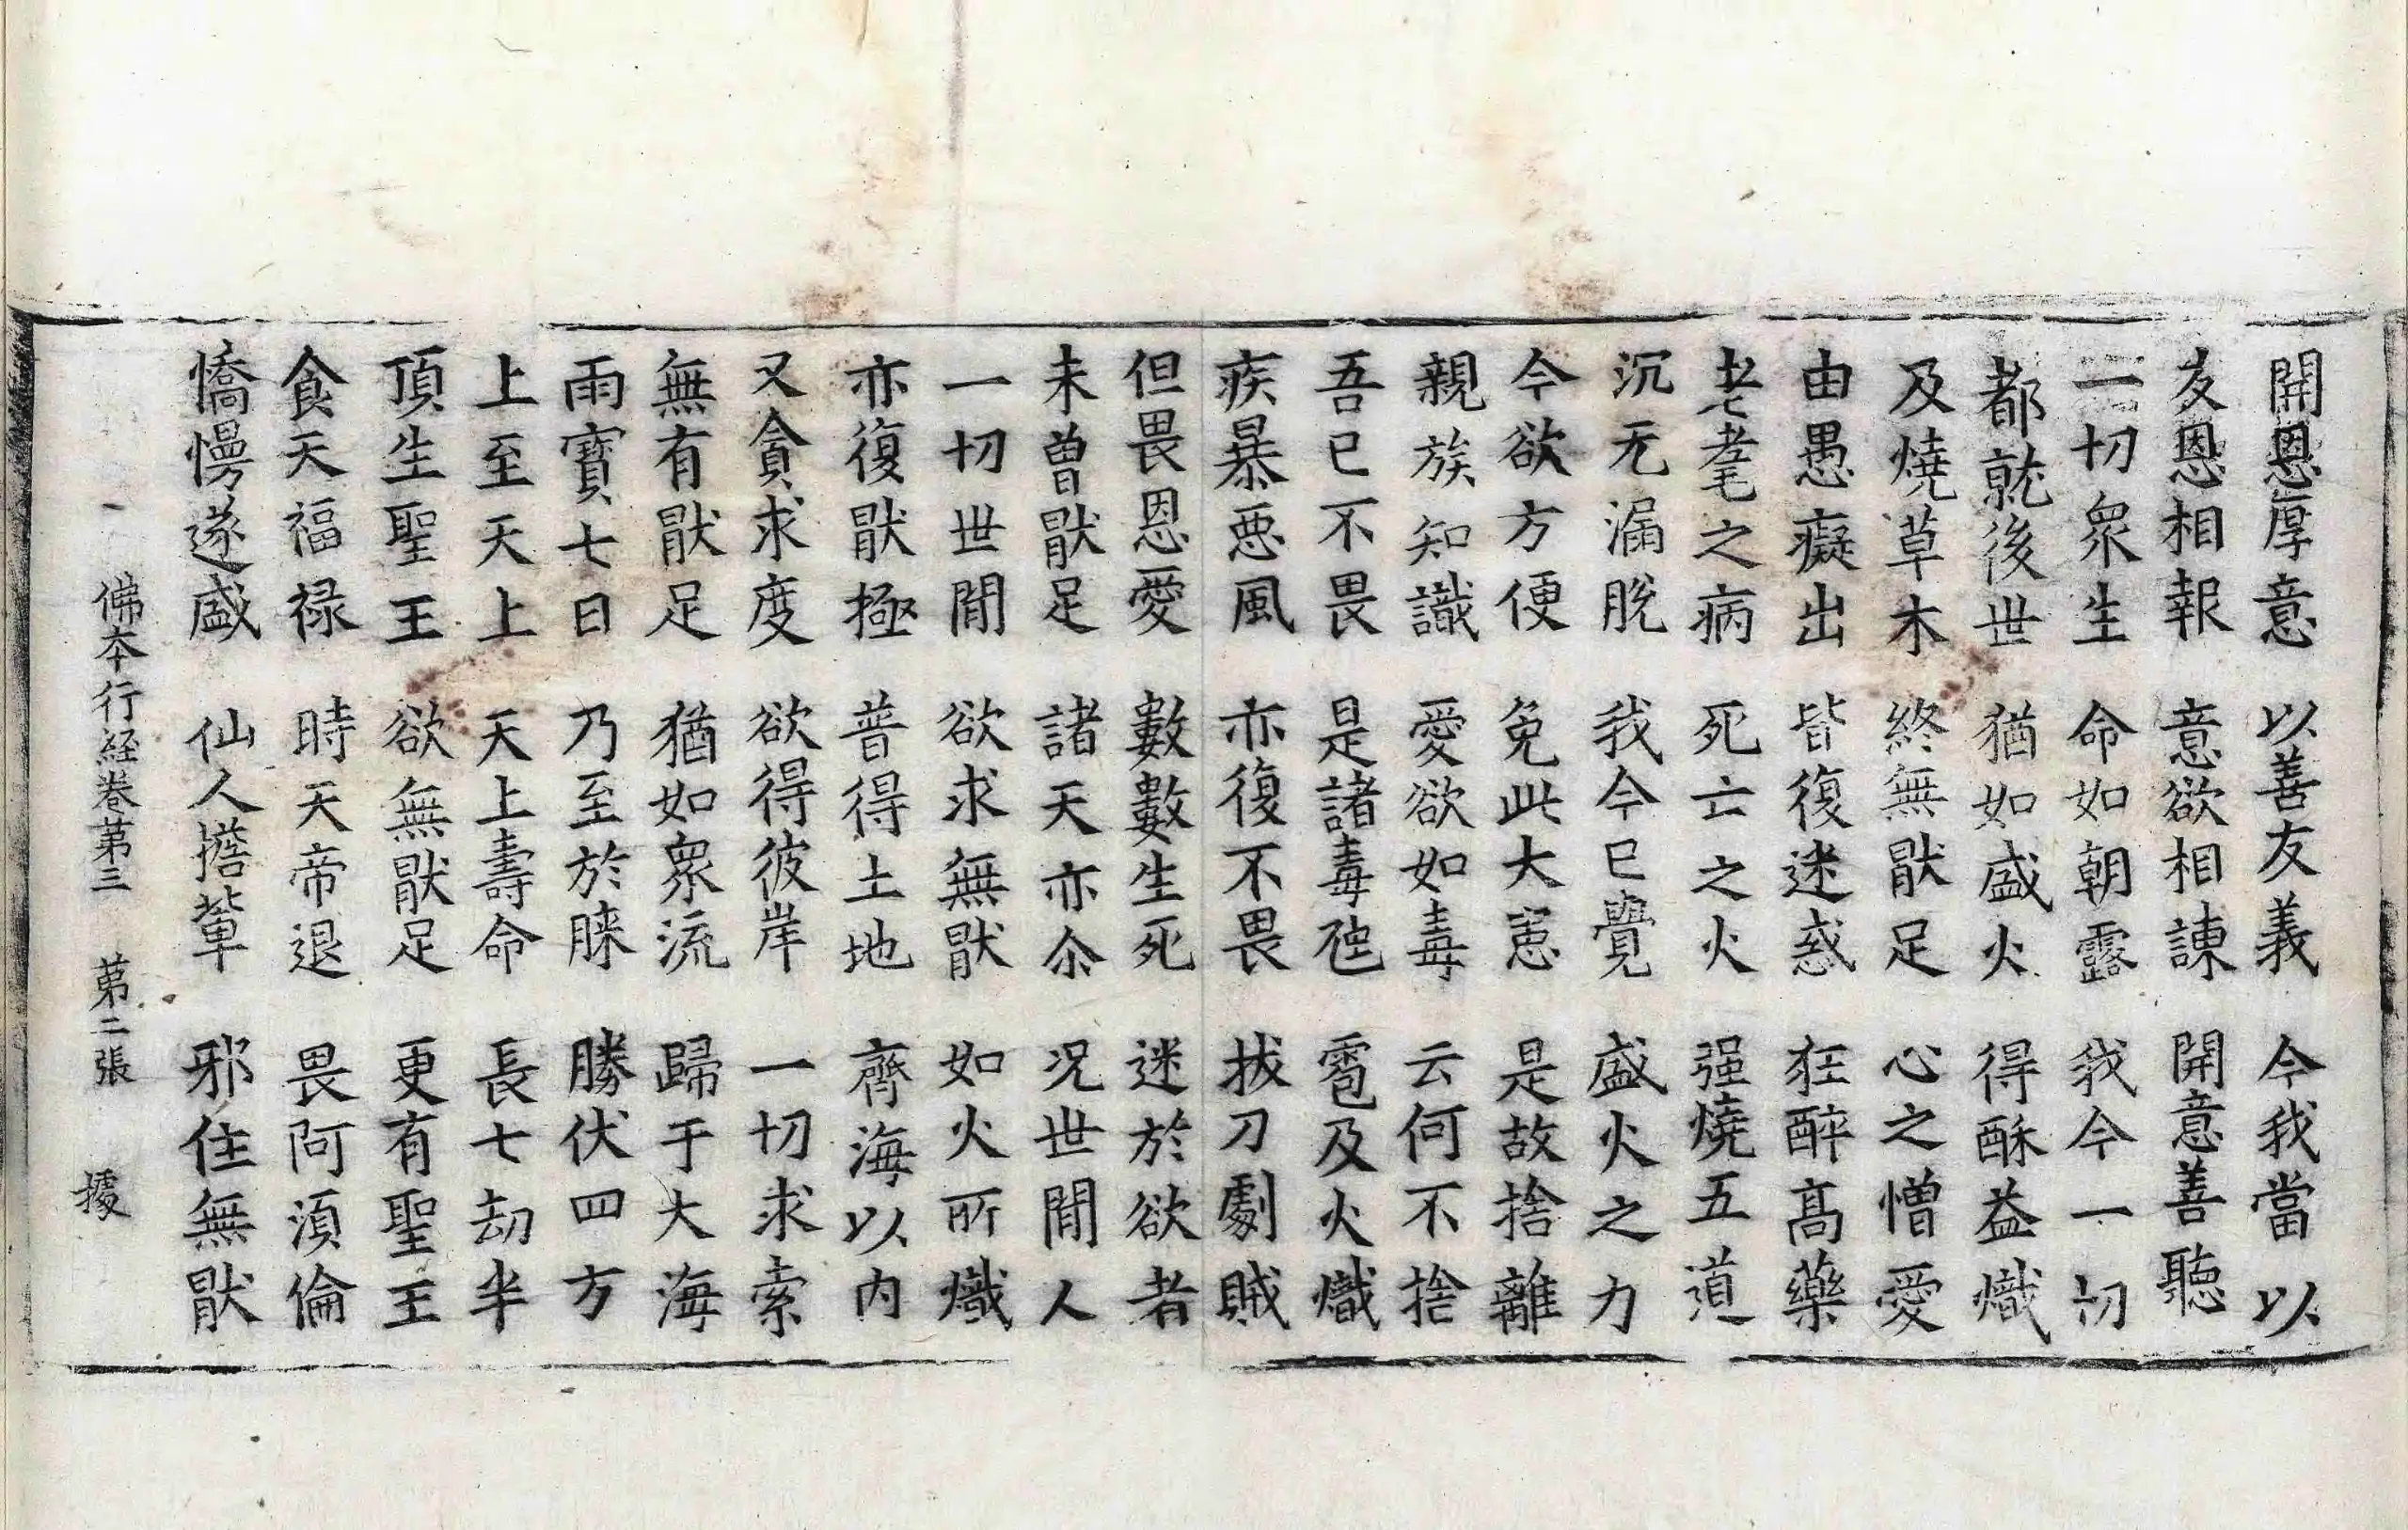 開恩厚意　以善友義　今我當以
友恩相報　意欲相諫　開意善聽
一切衆生　命如朝露　我今一切
都就後世　猶如盛火　得酥益熾
及燒草木　終無猒足　心之憎愛
由愚癡出　皆復迷惑　狂醉高藥
老耄之病　死亡之火　强燒五道
沉无漏脫　我今已覺　盛火之力
今欲方便　免此大患　是故捨離
親族知識　愛欲如毒　云何不捨
吾已不畏　是諸毒虵　雹及火熾
疾暴惡風　亦復不畏　拔刀劇賊
但畏恩愛　數數生死　迷於欲者
未曾猒足　諸天亦尒　况世間人
一切世間　欲求無猒　如火所熾
亦復猒極　普得土地　齊海以內
又貪求度　欲得彼岸　一切求索
無有猒足　猶如衆流　歸于大海
雨寶七日　乃至於膝　勝伏四方
上至天上　天上壽命　長七劫半
頂生聖王　欲無猒足　更有聖王
食天福禄　時天帝退　畏阿須倫
憍慢遂盛　仙人擔輦　邪住無猒
佛本行経卷第三　第二張　據